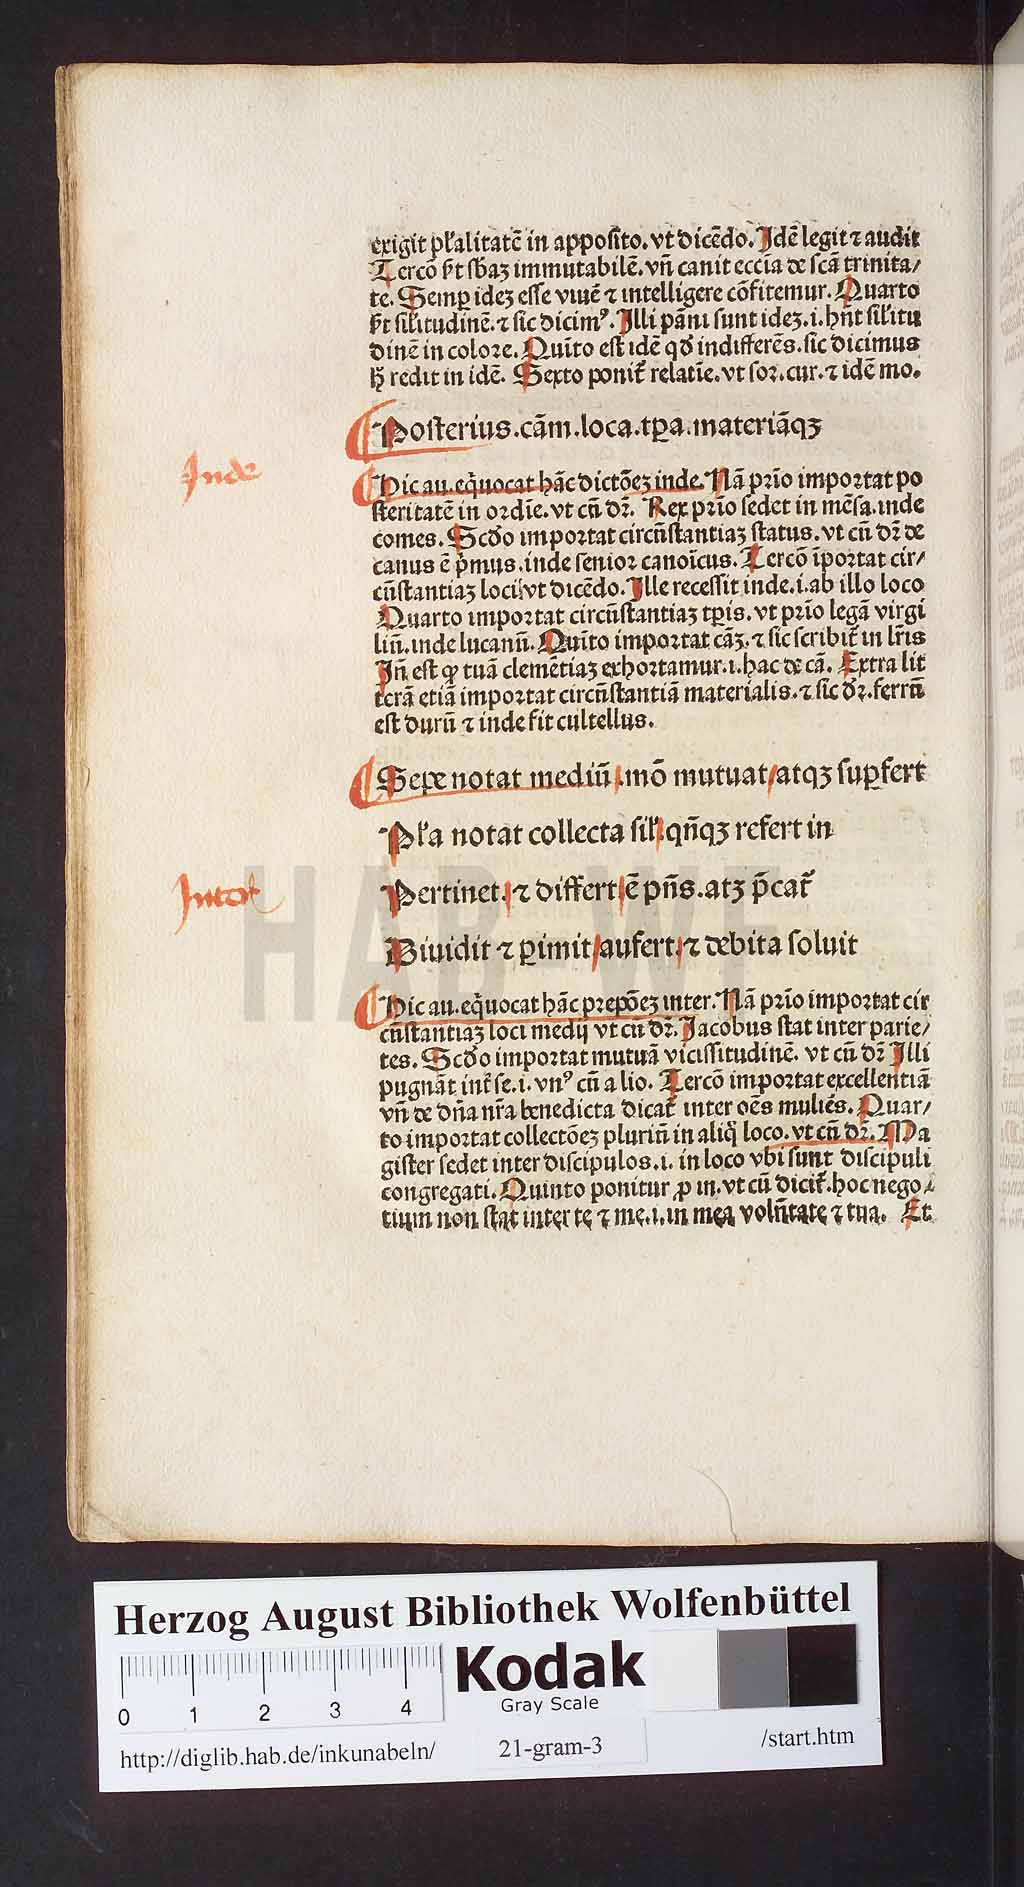 exigit pl̄alitatē in apposito. vt dicēdo. Idē legit ⁊ audit
Tercō ẜm sb̄aꝫ immutabilē. vn̄ canit eccīa de scā trinita/
te. Semꝑ ideꝫ esse viuē ⁊ intelligere cōfitemur. Quarto
silitudinē. ⁊ sic dicimꝰ. Illi pāni sunt ideꝫ. i. hn̄t sil̄itu
dinē in colore. Quīto est idē qd̄ indifferēs. sic dicimus
redit in idē. Sexto ponit̄ relatie. vt sor. cur. ⁊ idē mo.
Posterius. cām. loca. tp̄a. materiāqꝫ
Inde
Hic au. eq̄uocat hāc dictōeꝫ inde. Nā prīo importat po
steritatē in ordīe. vt cū dr̄. Rex prīo sedet in mēsa. inde
comes. Scd̄o importat circūstantiaꝫ status. vt cū dr̄ de
canus ē p̄mus. inde senior canoīcus. Tercō īportat cir/
cūstantiaꝫ loci vt dicēdo. Ille recessit inde. i. ab illo loco
Quarto importat circūstantiaꝫ tp̄is. vt prīo legā virgi
liū. inde lucanū. Quīto importat cāꝫ. ⁊ sic scribit̄ in lr̄is
In̄ est ꝙ tuā clemētiaꝫ exhortamur. i. hac de cā. Extra lit
terā etiā importat circūstantiā materialis. ⁊ sic dr̄. ferrū
est durū ⁊ inde fit cultellus.
Sepe notat mediū. mō mutuat/ atqꝫ suꝑfert
Pl̄a notat collecta sil̄. qn̄qꝫ refert in
Intꝰ
Pertinet. ⁊ differt ē pn̄s. atꝫ p̄cat̄
Diuidit ⁊ ꝑimit/ aufert. ⁊ debita soluit
Hic au. eq̄uocat hāc prepōeꝫ inter. Nā prīo importat cir
cūstantiaꝫ loci medij vt cū dr̄. Jacobus stat inter parie/
tes. Scd̄o importat mutuā vicissitudinē. vt cū dr̄ Illi
pugnāt int̄ se. i. vnꝰ cū alio. Tercō importat excellentiā
vn̄ de dn̄a nr̄a benedicta dicat̄ inter oēs mulie̅s. Quar/
to importat collectōeꝫ pluriū in aliq̄ loco. vt cū dr̄. Ma
gister sedet inter discipulos. i. in loco vbi sunt discipuli
congregati. Quinto ponitur ꝓ in. vt cū dicit̄. hoc nego/
tium non stat inter te ⁊ me. i. in mea volūtate ⁊ tua. Et
HAB-WF
Herzog August Bibliothek Wolfenbüttel
0 1 2 3 4
Kodak
Gray Scale
http://diglib.hab.de/inkunabeln/
21-gram-3
/start.htm